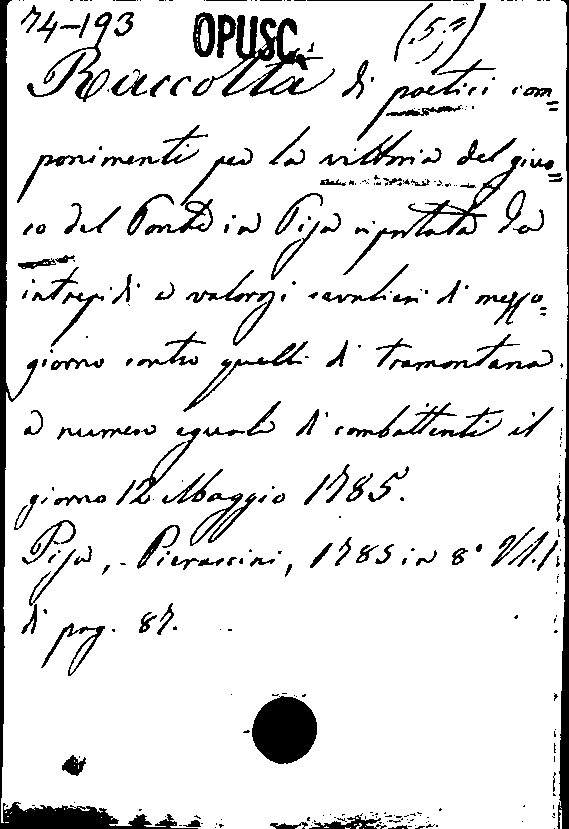 74-193 OPUSC. (5.a)
Raccolta di poetici com=
ponimenti per la vittoria del giuo=
co del Ponte in Pisa riportata da
intrepidi e valorosi cavalieri di mezzo=
giorno contro quelli di tramontana
a numero eguale di combattenti il
giorno 12 Maggio 1785.
Pisa, - Pieraccini, 1785 in 8° V1.1
di pag. 87.